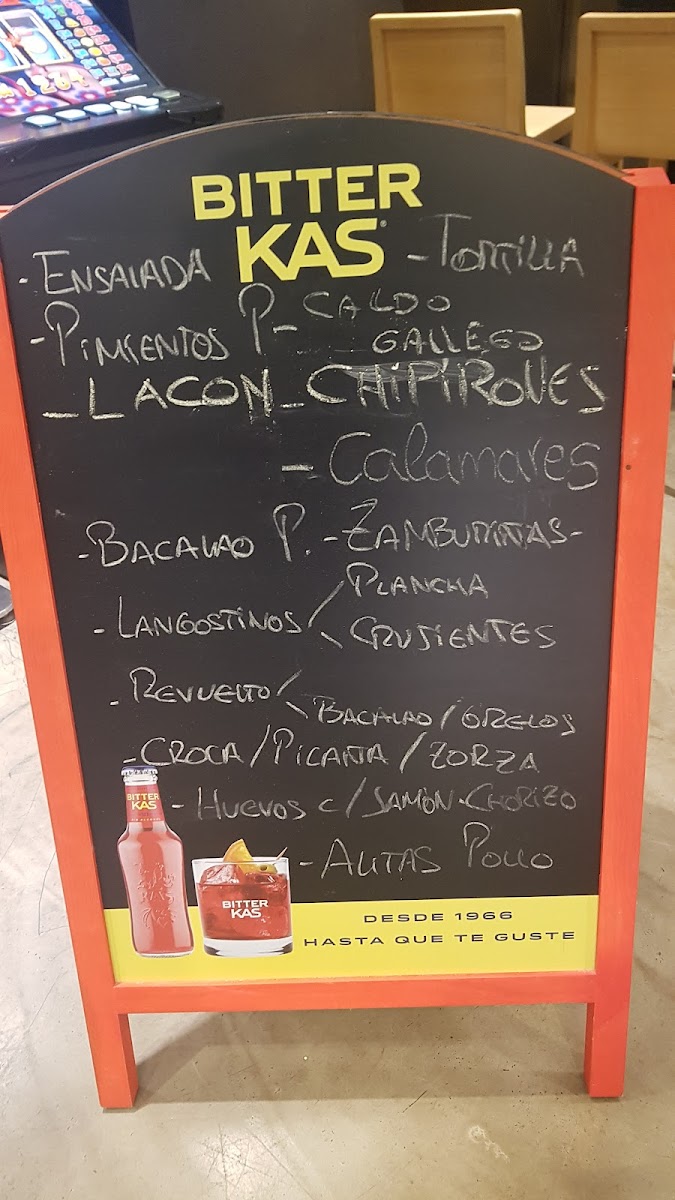 BITTER
KAS®
-ENSALADA -TORTILLA
-PIMIENTOS P- CALDO
GALLEGO
-LACON -CHIPIRONES
-Calamares
-BACALAO P. -ZAMBURIÑAS-
-LANGOSTINOS/ PLANCHA
CRUJIENTES
-REVUELTO/
BACALAO/GRELOS
-CROCA/PICAÑA/ZORZA
-HUEVOS C/JAMÓN-CHORIZO
-ALITAS POLLO
BITTER
KAS
BITTER
KAS
DESDE 1966
HASTA QUE TE GUSTE